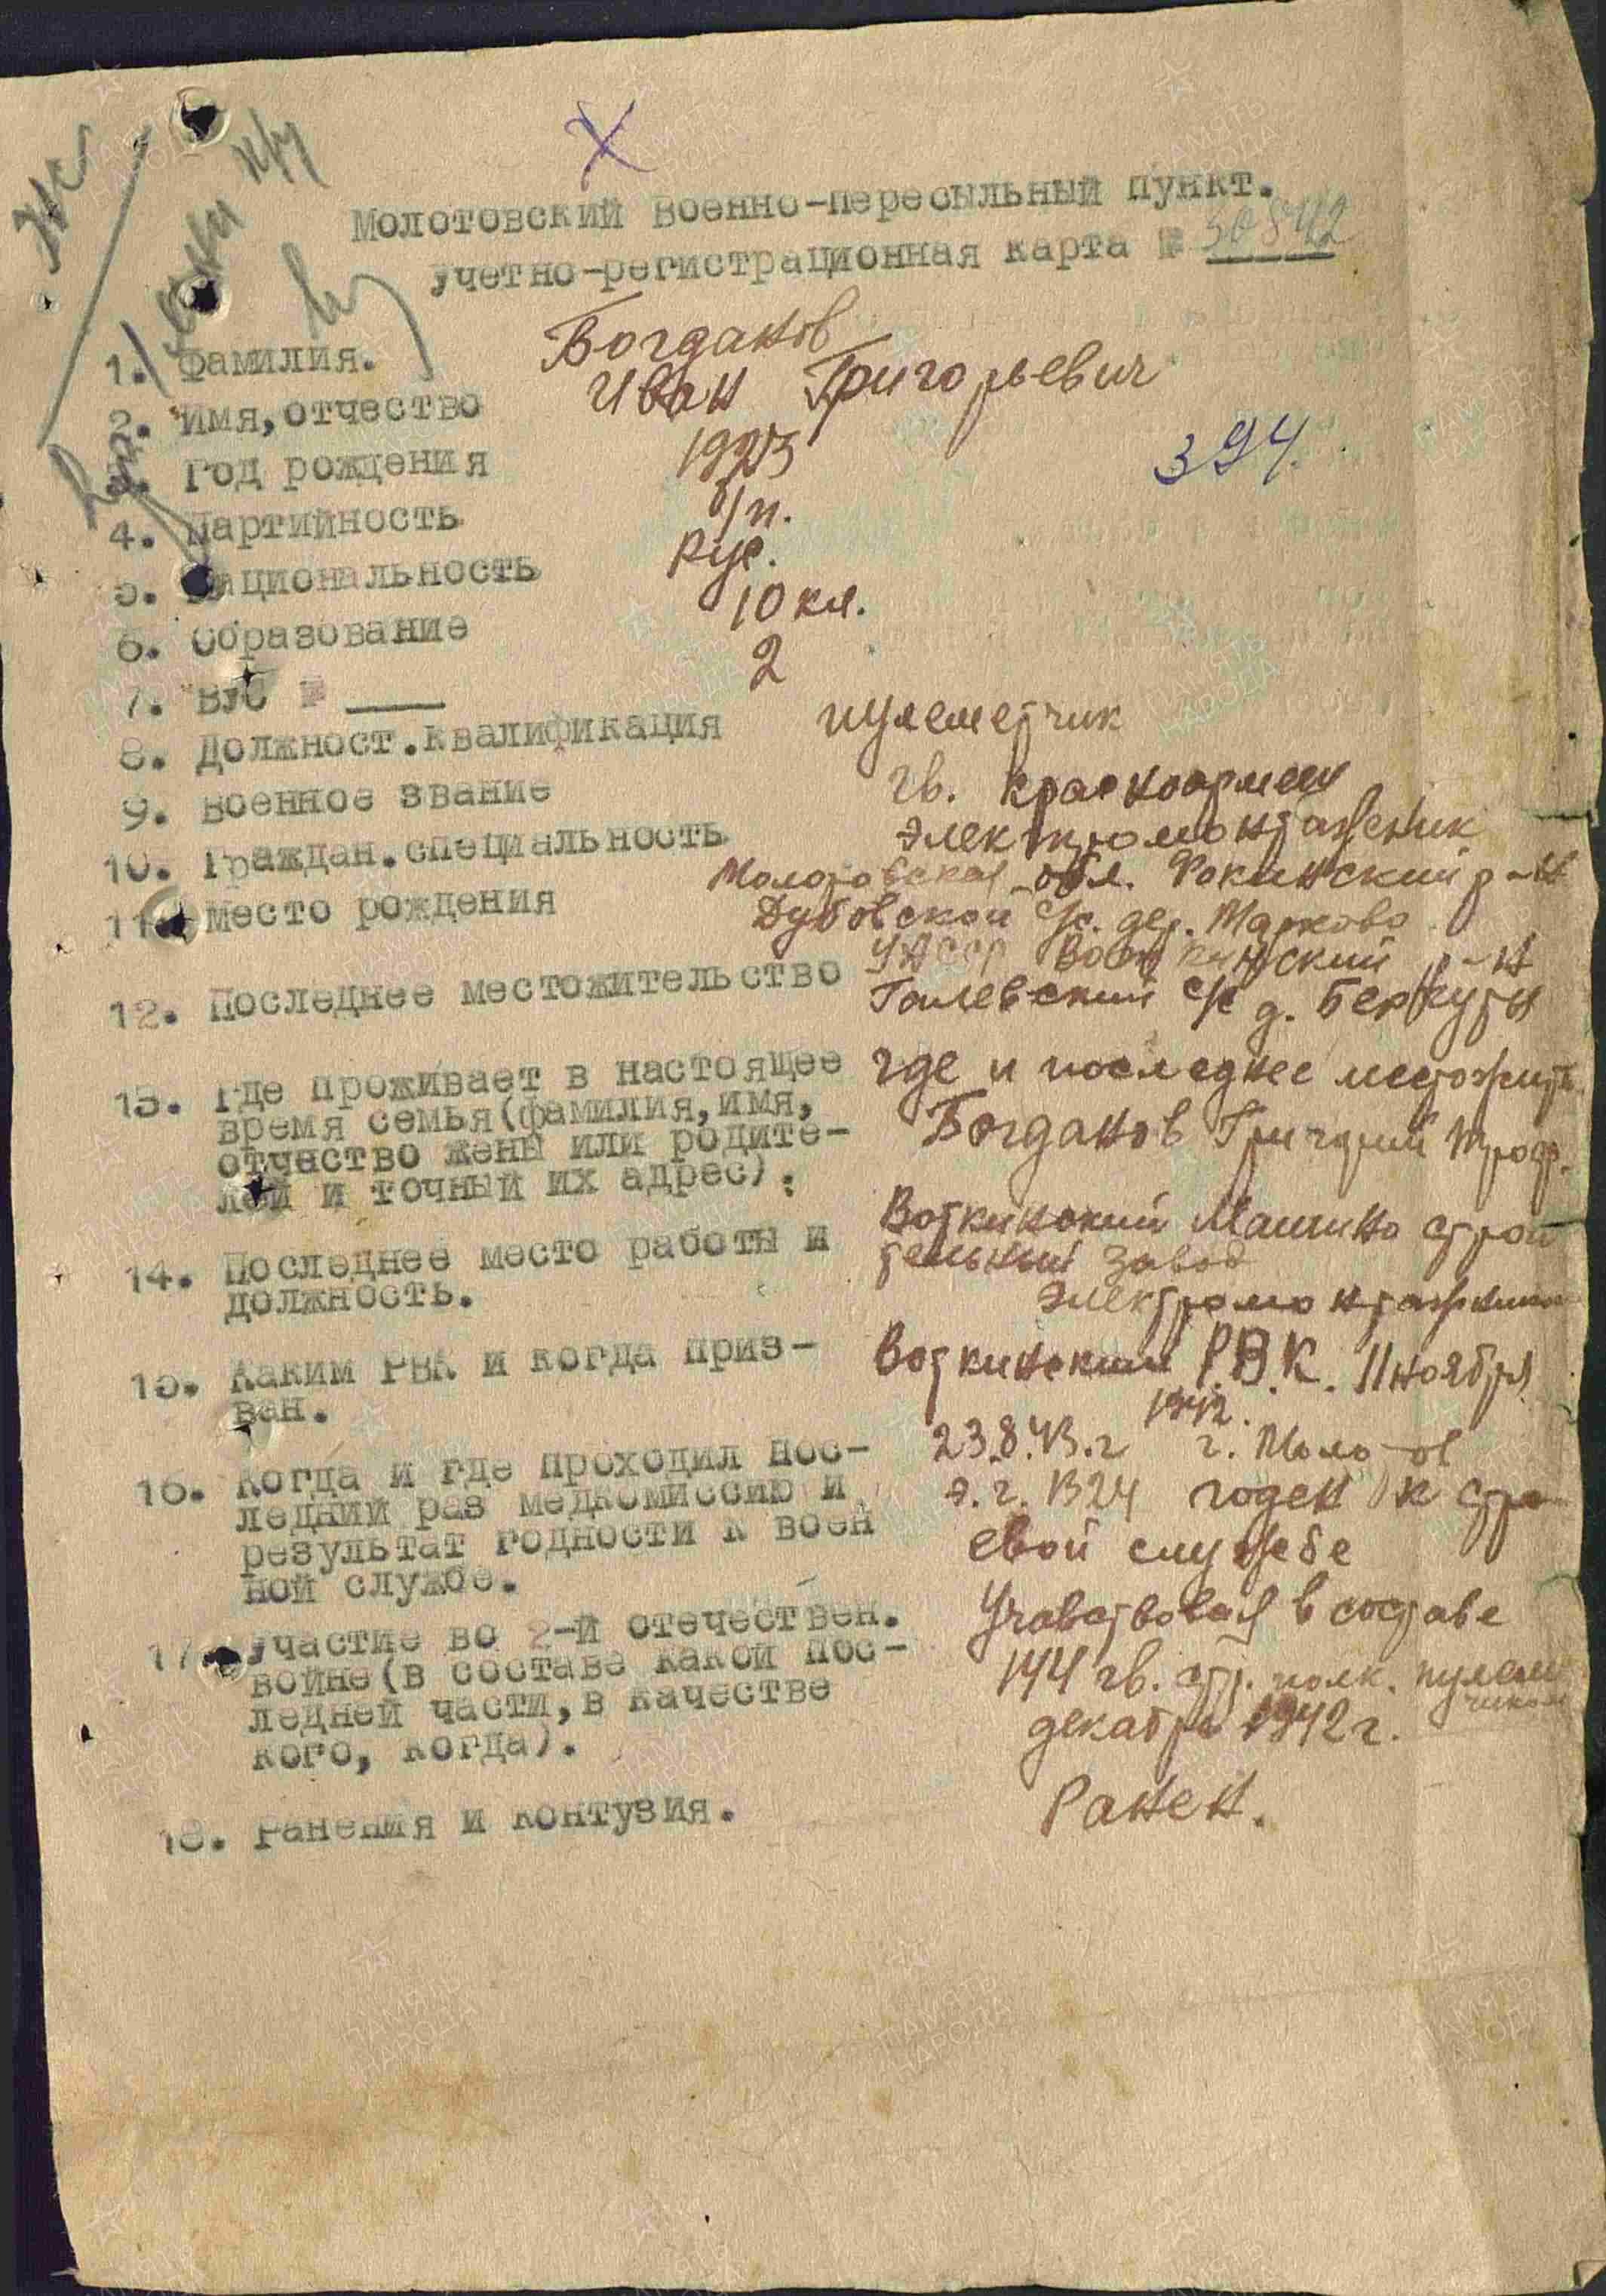 Молотовский военно-пересыльный пункт.
Учетно-регистрационная карта № 50842
1. Фамилия. Богданов
2. Имя, отчество Иван Григорьевич
3. Год рождения 1925
394.
4. Партийность б/п.
5. Национальность Рус.
6. Образование 10 кл.
7. ВУС № 2
8. Должност. квалификация пулеметчик
9. Военное звание гв. красноармеец
10. Граждан. специальность электромонтажник
11. Место рождения Молотовская обл. Фокинский р-н
Дубовской с/с. дер. Марково
12. Последнее местожительство УАССР Воткинский р-н
Галевский с/с д. Беркуты
13. Где проживает в настоящее где и последнее местожит.
время семья (фамилия, имя,
отчество жены или родите- Богданов Григорий Троф.
лей и точный их адрес).
14. Последнее место работы и Воткинский Машинострои
должность. тельный завод
Электромонтажник
15. Каким РВК и когда приз- Воткинским Р.В.К. 11 ноября
ван. 1942.
16. Когда и где проходил пос- 23.8.43.г г. Молотов
ледний раз медкомиссию и э.г. 1324 годен к стро
результат годности к воен евой службе
ной службе.
17. Участие во 2-й отечествен. Учавствовал в составе
войне (в составе какой пос- 144 гв. стр. полк. пулемет
ледней части, в качестве чиком
кого, когда). декабрь 1942 г.
18. Ранения и контузия. Ранен.
ПАМЯТЬ НАРОДА